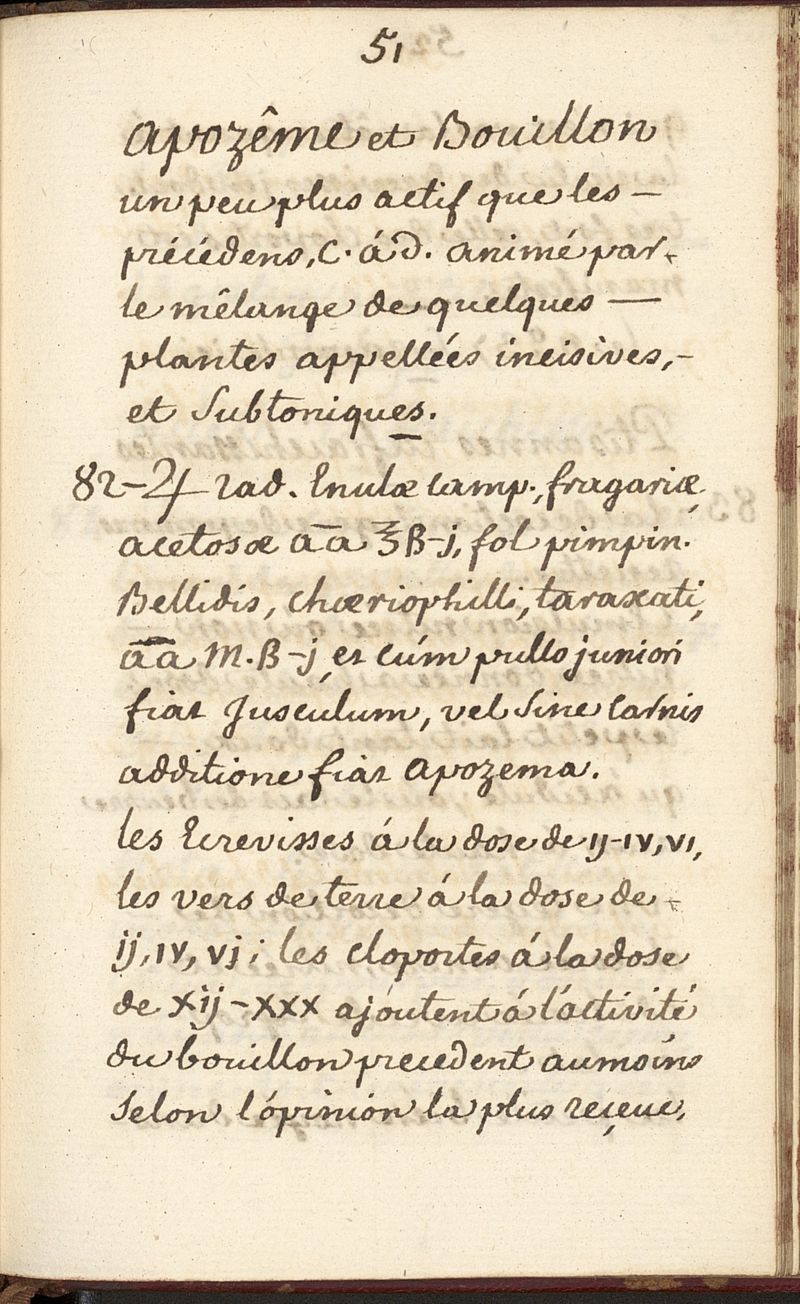 51
apozême et Bouillon
un peu plus actif que les —
précédens, C. á d. animé par -
le mêlange de quelques —
plantes appellées incisives, -
et Subtoniques.
82 - ♃ rad. Enulæ camp., fragariæ,
acetosæ āa ℥ß-j, fol pimpin.
Bellidis, chæriophilli, taraxati,
āa M. ß-j, et cúm pullo juniori
fiat Jusculum, vel sine Carnis
additione fiat apozema.
les Ecrevisses á la dose de ij-iv, vi,
les vers de terre á la dose de -
ij, iv, vj; les cloportes á la dose
de xij - xxx ajoutent á l'activité
du bouillon precedent au moins
selon l'opinion la plus reçeue,